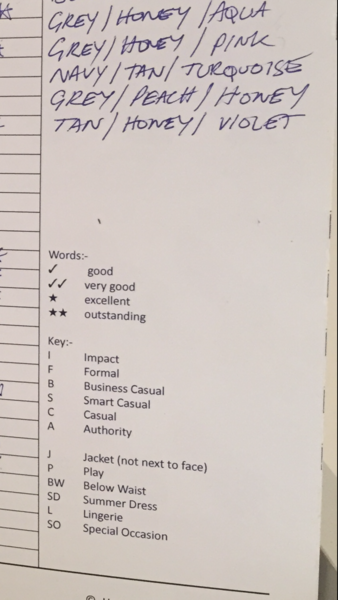 GREY/HONEY/AQUA
GREY/HONEY/PINK
NAVY/TAN/TURQUOISE
GREY/PEACH/HONEY
TAN/HONEY/VIOLET
Words:-
✓ good
✓✓ very good
★ excellent
★★ outstanding
Key:-
I Impact
F Formal
B Business Casual
S Smart Casual
C Casual
A Authority
J Jacket (not next to face)
P Play
BW Below Waist
SD Summer Dress
L Lingerie
SO Special Occasion